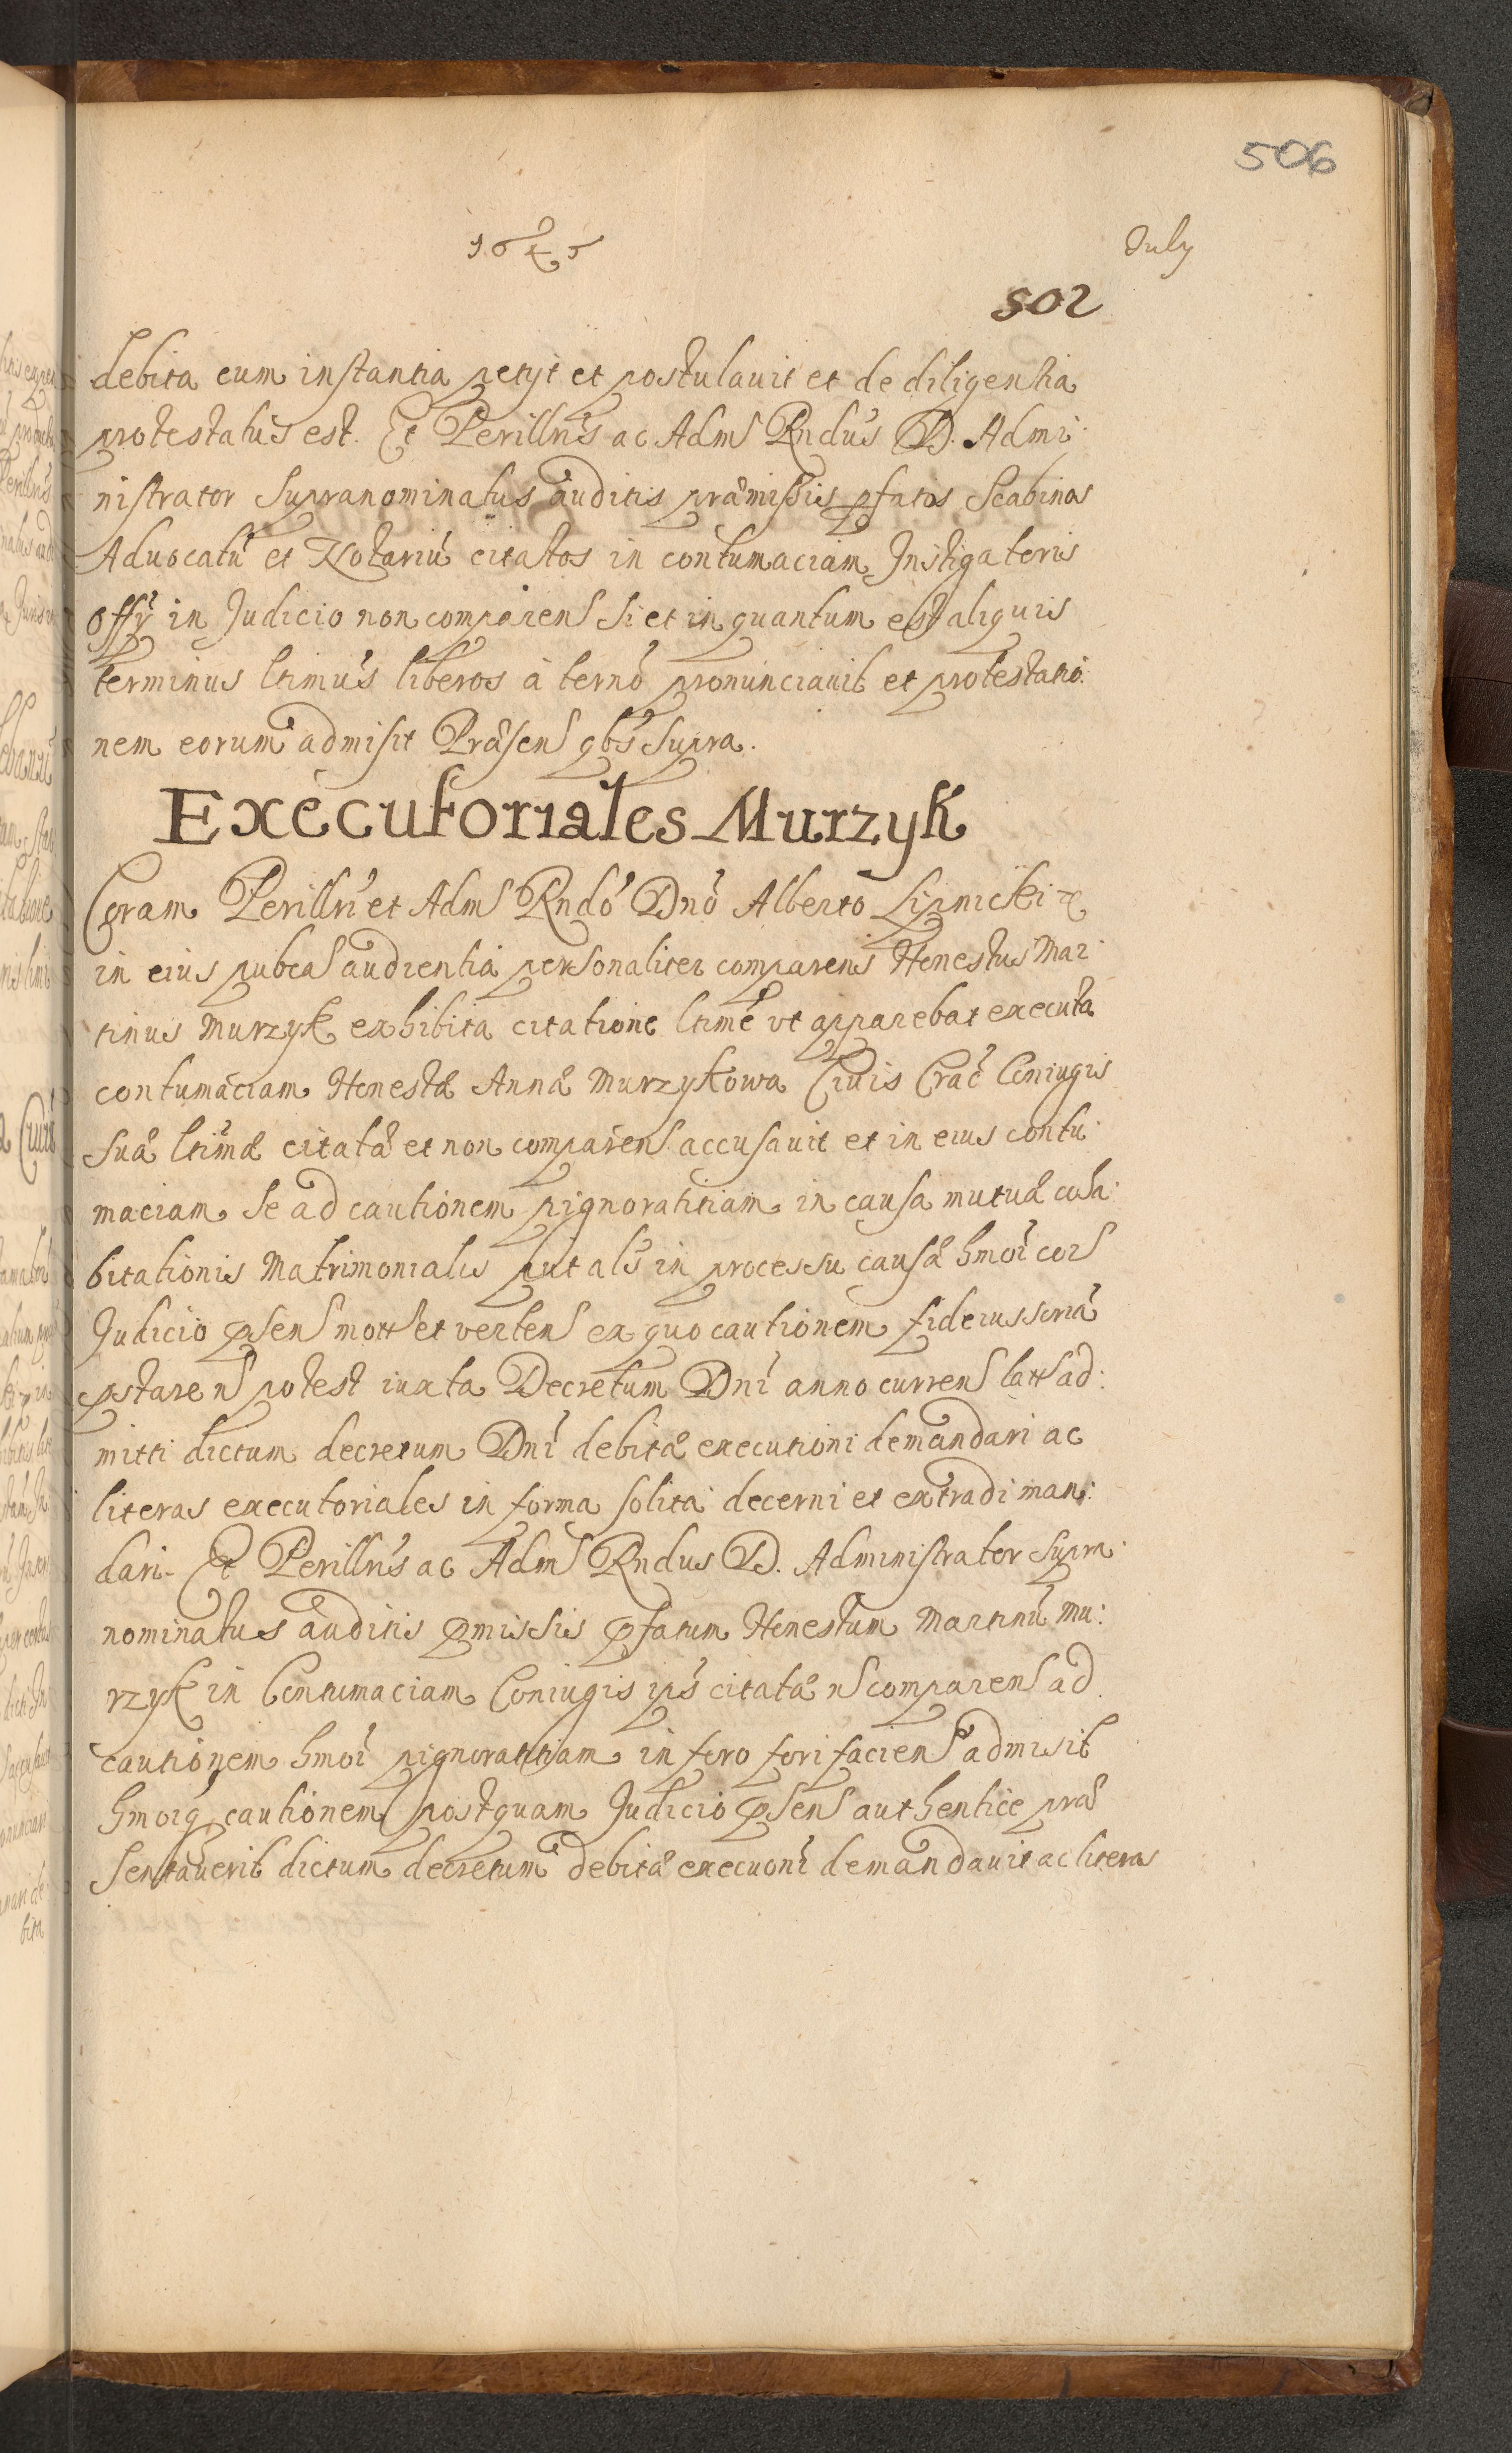 506
1645
July
502
debita cum instantia petyt et postulauit et de diligentia
protestatus est. Et Perillris ac Adm Rndus D. Admi:
nistrator Supranominatus auditis præmissis pfatos Scabinos
Aduocatū et Notariū citatos in contumaciam Instigatoris
Offÿ in Judicio non comparen si et in quantum est aliquis
terminus ltimus liberos à termō pronunciauit et protestatio:
nem eorum admisit Præsen qbs supra.
Executoriales Murzyk
Coram Perillri et Adm Rndō Dnō Alberto Lipnicki
in eius pubca audientia personaliter comparens Honestus Mar:
tinus Murzyk exhibita citatione ltime vt apparebat executa
contumaciam Honestæ Annæ Murzykowa Ciuis Crac Coniugis
suæ ltimæ citatæ et non comparen accusauit et in eius contu:
maciam se ad cautionem pignoratitiam in causa mutuæ coha:
bitationis Matrimonialis put als in processu causæ hmoi cor
Judicio psen mott et verten ex quo cautionem fideiussoriā
pstare n potest iuxta Decretum Dni anno curren latt ad:
mitti dictum decretum Dni debitæ executioni demandari ac
literas executoriales in forma solita decerni et extradi man:
dari. Et Perillris ac Adm Rndus D. Administrator supra:
nominatus auditis pmissis pfatum Honestum Martinū Mu:
rzyk in Contumaciam Coniugis ips citatæ n comparen ad
cautionem hmoi pignoratitiam in foro fori facien admisit
hmoiq cautionem postquam Judicio psen authentice præ
sentauerit dictum decretum debitæ execuoni demandauit ac literas